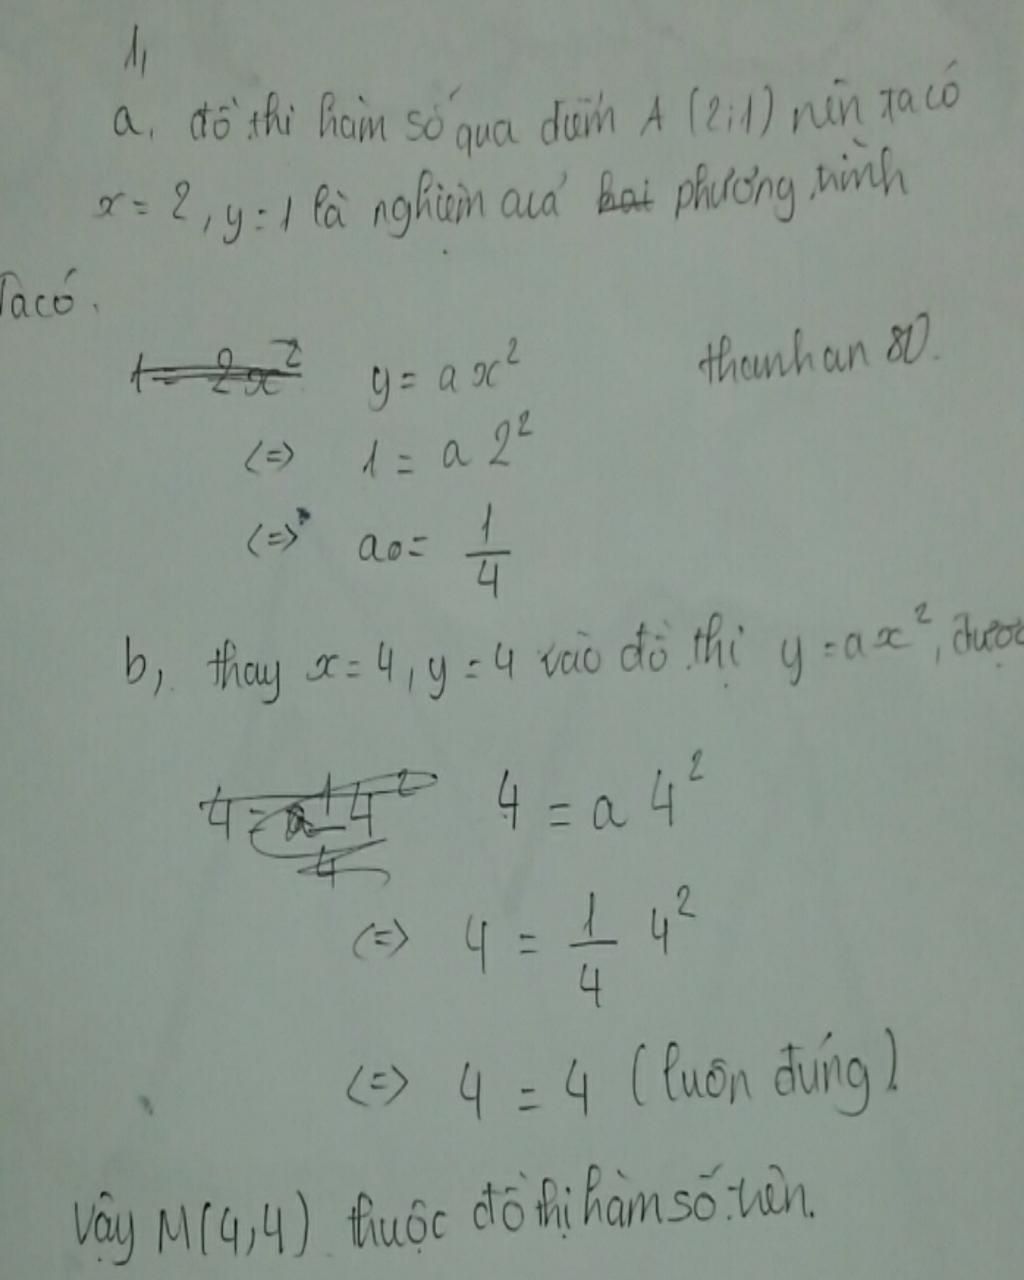 1,
a, đồ thị hàm số qua điểm A (2;1) nên ta có
x = 2, y = 1 là nghiệm của phương trình
Ta có.
1 = 2x² y = ax² thanhan80.
<=> 1 = a 2²
<=> a = 1/4
b, thay x = 4, y = 4 vào đồ thị y = ax², được
4 = 1/4 4² 4 = a 4²
<=> 4 = 1/4 4²
<=> 4 = 4 (luôn đúng)
Vậy M(4,4) thuộc đồ thị hàm số trên.